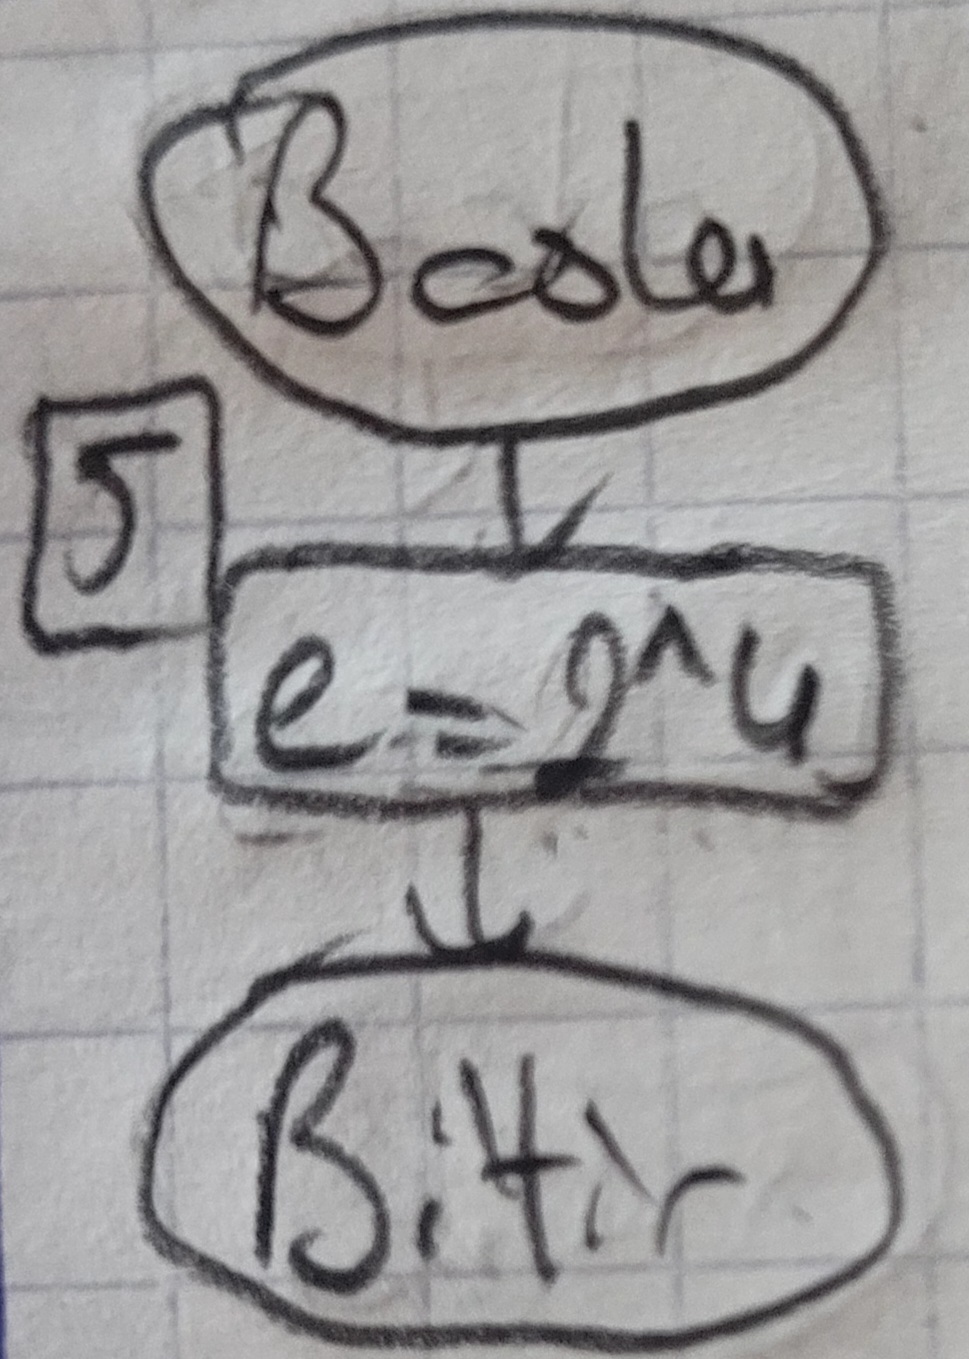 Basla
5
e = 2^4
Bitir